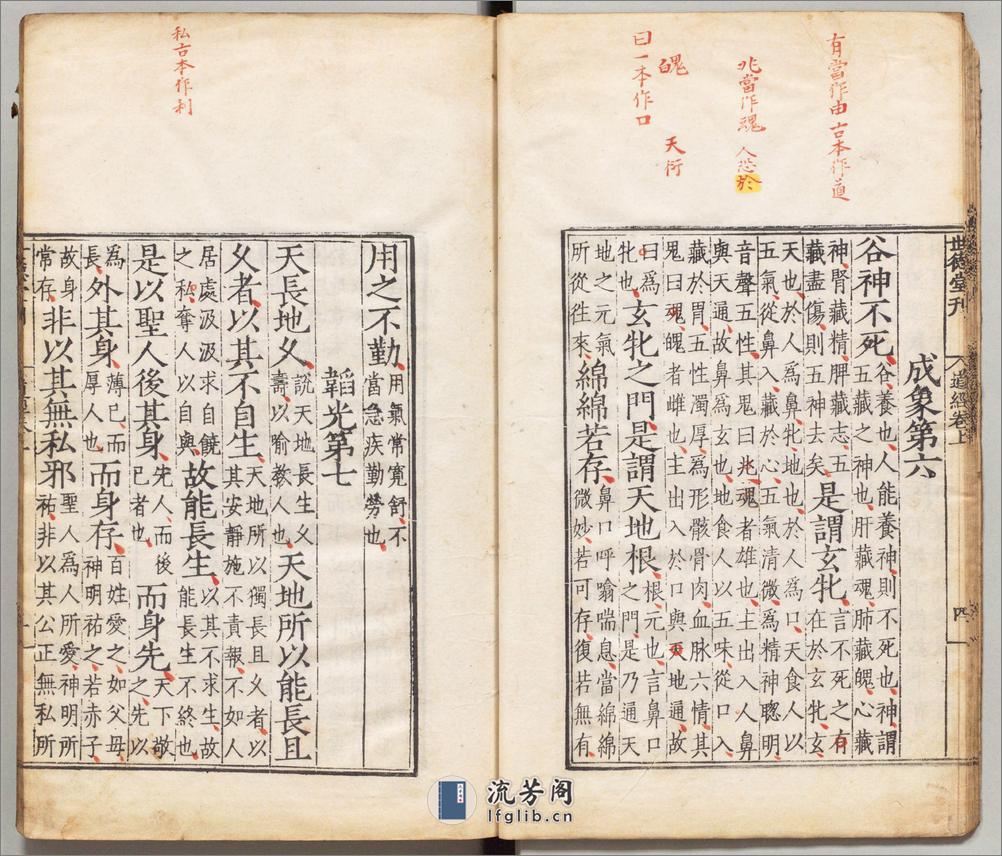 有當作由 古本作道
兆當作魂 人恐於
魄 天衍
曰一本作口
世德堂刊 道經卷上 四
成象第六
谷神不死谷養也人能養神則不死也神謂五藏之神也肝藏魂肺藏魄心藏
神腎藏精脾藏志五藏盡傷則五神去矣是謂玄牝言不死之有在於玄牝玄
天也於人爲鼻牝地也於人爲口天食人以五氣從鼻入藏於心五氣清微爲精神聰明
音聲五性其鬼曰兆魂者雄也主出入人鼻與天通故鼻爲玄也地食人以五味從口入
藏於胃五性濁厚爲形骸骨肉血脉六情其鬼曰魂魄者雌也主出入於口與天地通故
曰爲牝也玄牝之門是謂天地根根元也言鼻口之門是乃通天
地之元氣所從往來綿綿若存鼻口呼噏喘息當綿綿微妙若可存復若無有
私古本作利
用之不勤用氣常寬舒不當急疾勤勞也
韜光第七
天長地久說天地長生久壽以喻教人也天地所以能長且
久者以其不自生天地所以獨長且久者以其安靜施不責報不如人
居處汲汲求自饒之私奪人以自與故能長生以其不求生故能長生不終也
是以聖人後其身先人而後己者也而身先天下敬之先以
爲長外其身薄己而厚人也而身存百姓愛之如父母神明祐之若赤子
故身常存非以其無私邪聖人爲人所愛神明所祐非以其公正無私所
流芳阁
lfglib.cn